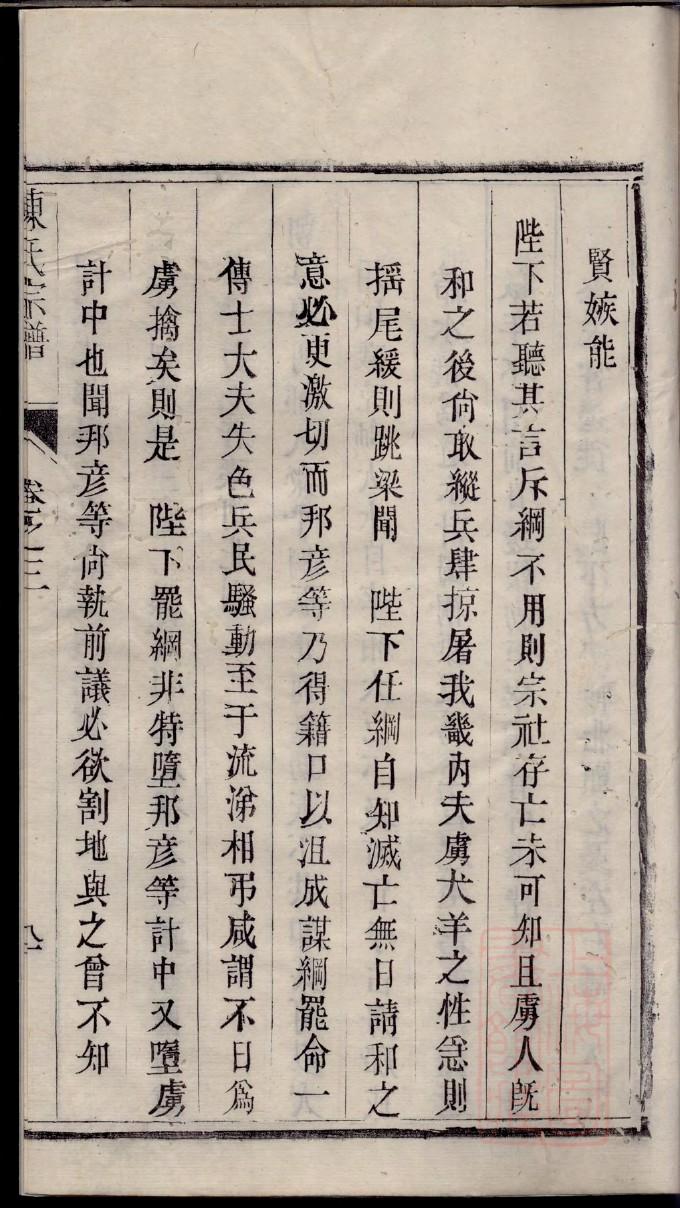 賢嫉能
陛下若聽其言斥綱不用則宗社存亡未可知且虜人旣
和之後尙敢縱兵肆掠屠我畿內夫虜犬羊之性急則
揺尾緩則跳梁聞　陛下任綱自知滅亡無日請和之
意必更激切而邦彦等乃得籍口以沮成謀綱罷命一
傳士大夫失色兵民騷動至于流涕相弔咸謂不日爲
虜擒矣則是　陛下罷綱非特墮邦彦等計中又墮虜
計中也聞邦彦等尙執前議必欲割地與之曾不知
陳氏宗譜　卷之三　八